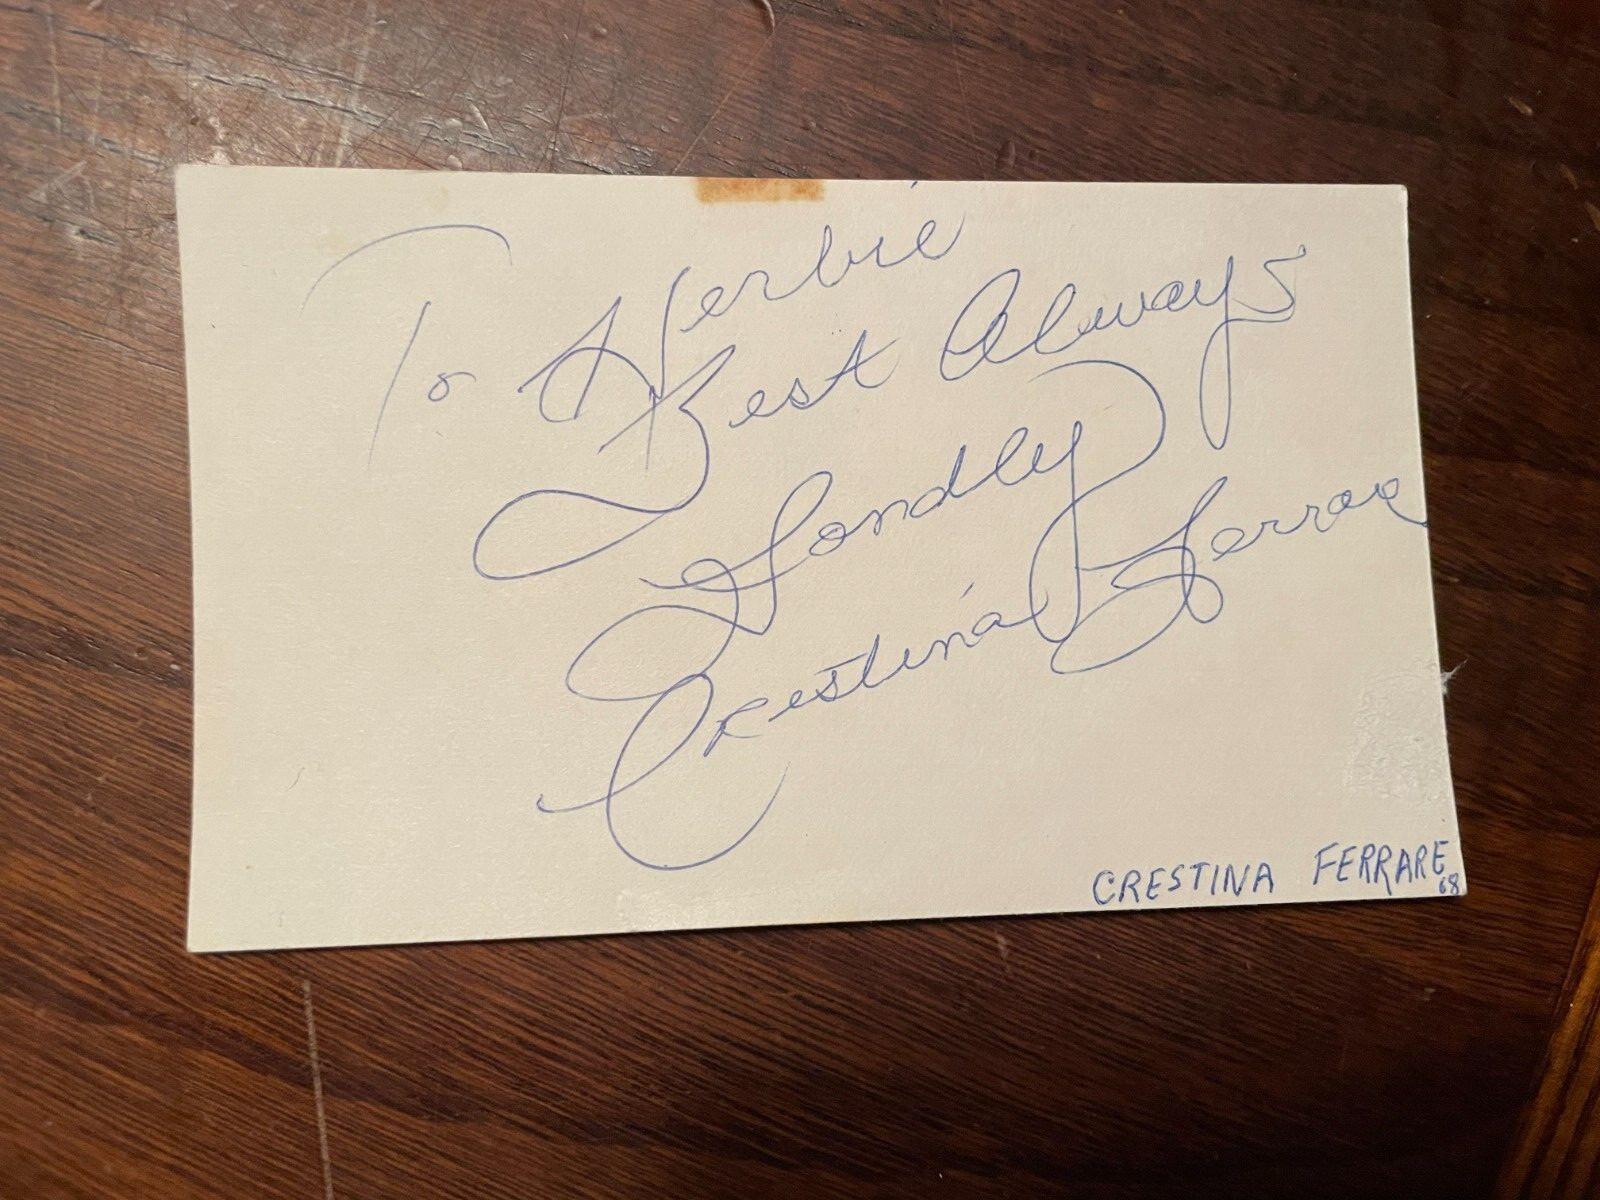 To Herbie
Best Always
Fondly
Crestina Ferrare
CRESTINA FERRARE
68